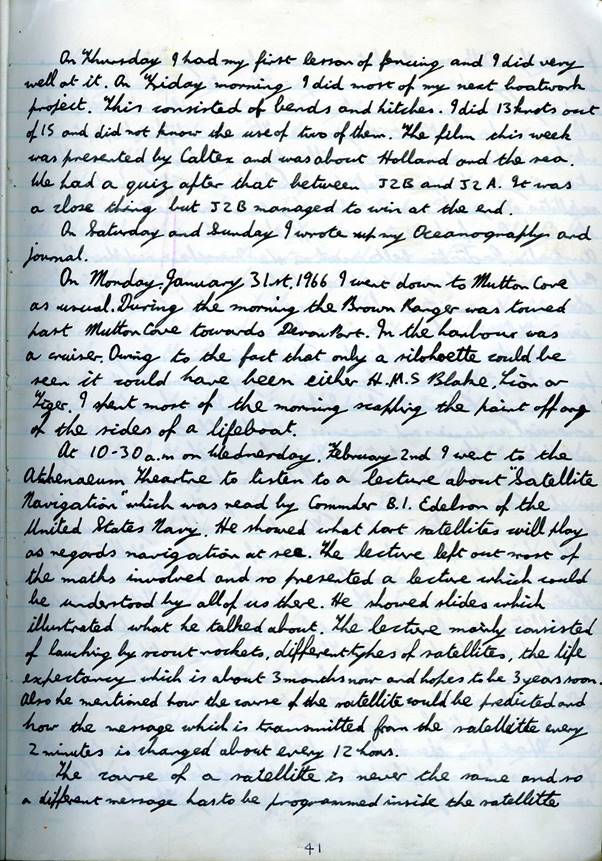 On Thursday I had my first lesson of fencing and I did very
well at it. On Friday morning I did most of my next boatwork
project. This consisted of bends and hitches. I did 13 knots out
of 15 and did not know the use of two of them. The film this week
was presented by Caltex and was about Holland and the sea.
We had a quiz after that between J2B and J2A. It was
a close thing but J2B managed to win at the end.
On Saturday and Sunday I wrote up my Oceanography and
journal.
On Monday, January 31st, 1966 I went down to Mutton Cove
as usual. During the morning the Brown Ranger was towed
past Mutton Cove towards Devonport. In the harbour was
a cruiser. Owing to the fact that only a silohoette could be
seen it could have been either H.M.S Blake, Lion or
Tiger. I spent most of the morning scapping the paint off one
of the sides of a lifeboat.
At 10-30 a.m on Wednesday, February 2nd I went to the
Athenaeum Theartre to listen to a lecture about "Satellite
Navigation" which was read by Commder B.I. Edelson of the
United States Navy. He showed what part satellites will play
as regards navigation at see. The lecture left out most of
the maths involved and so presented a lecture which could
be understood by all of us there. He showed slides which
illustrated what he talked about. The lecture mainly consisted
of lauching by scout rockets, different types of satellites, the life
expectancy which is about 3 months now and hopes to be 3 years soon.
Also he mentioned how the course of the satellite could be predicted and
how the message which is transmitted from the satellitte every
2 minutes is changed about every 12 hours.
The course of a satellitte is never the same and so
a different message has to be programmed inside the satellitte
41